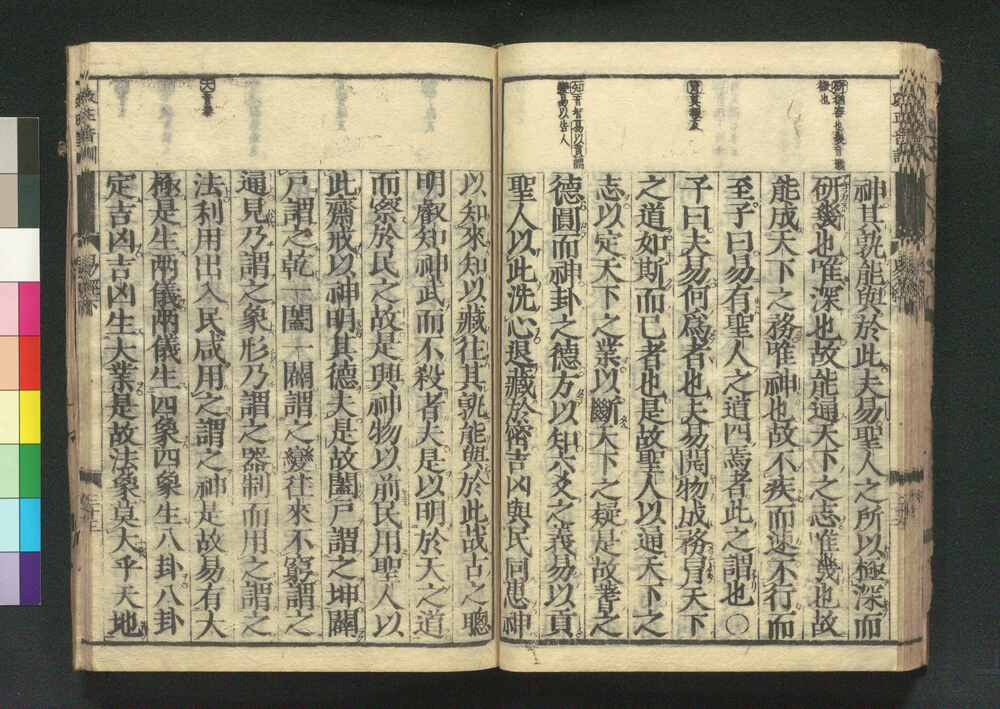 神其孰能與於此夫易聖人之所以極深而
研幾也唯深也故能通天下之志唯幾也故
能成天下之務唯神也故不疾而速不行而
至子曰易有聖人之道四焉者此之謂也○
子曰夫易何爲者也夫易開物成務冒天下
之道如斯而已者也是故聖人以通天下之
志以定天下之業以斷天下之疑是故蓍之
德圓而神卦之德方以知六爻之義易以貢
聖人以此洗心退藏於密吉凶與民同患神
以知來知以藏往其孰能與於此哉古之聰
明叡知神武而不殺者夫是以明於天之道
而察於民之故是興神物以前民用聖人以
此齋戒以神明其德夫是故闔戶謂之坤闢
戶謂之乾一闔一闢謂之變往來不窮謂之
通見乃謂之象形乃謂之器制而用之謂之
法利用出入民咸用之謂之神是故易有大
極是生兩儀兩儀生四象四象生八卦八卦
定吉凶吉凶生大業是故法象莫大乎天地
知音智易以貢謂
變易以告人
大音泰
易經